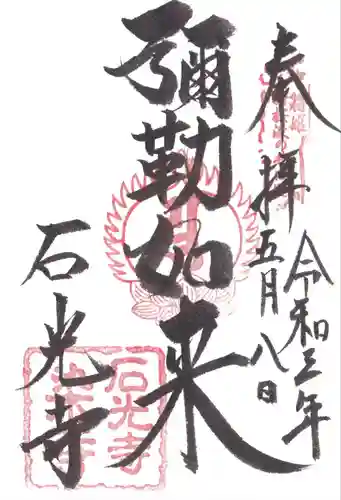 奉拝
令和三年
五月八日
彌勒如来
石光寺
石光寺